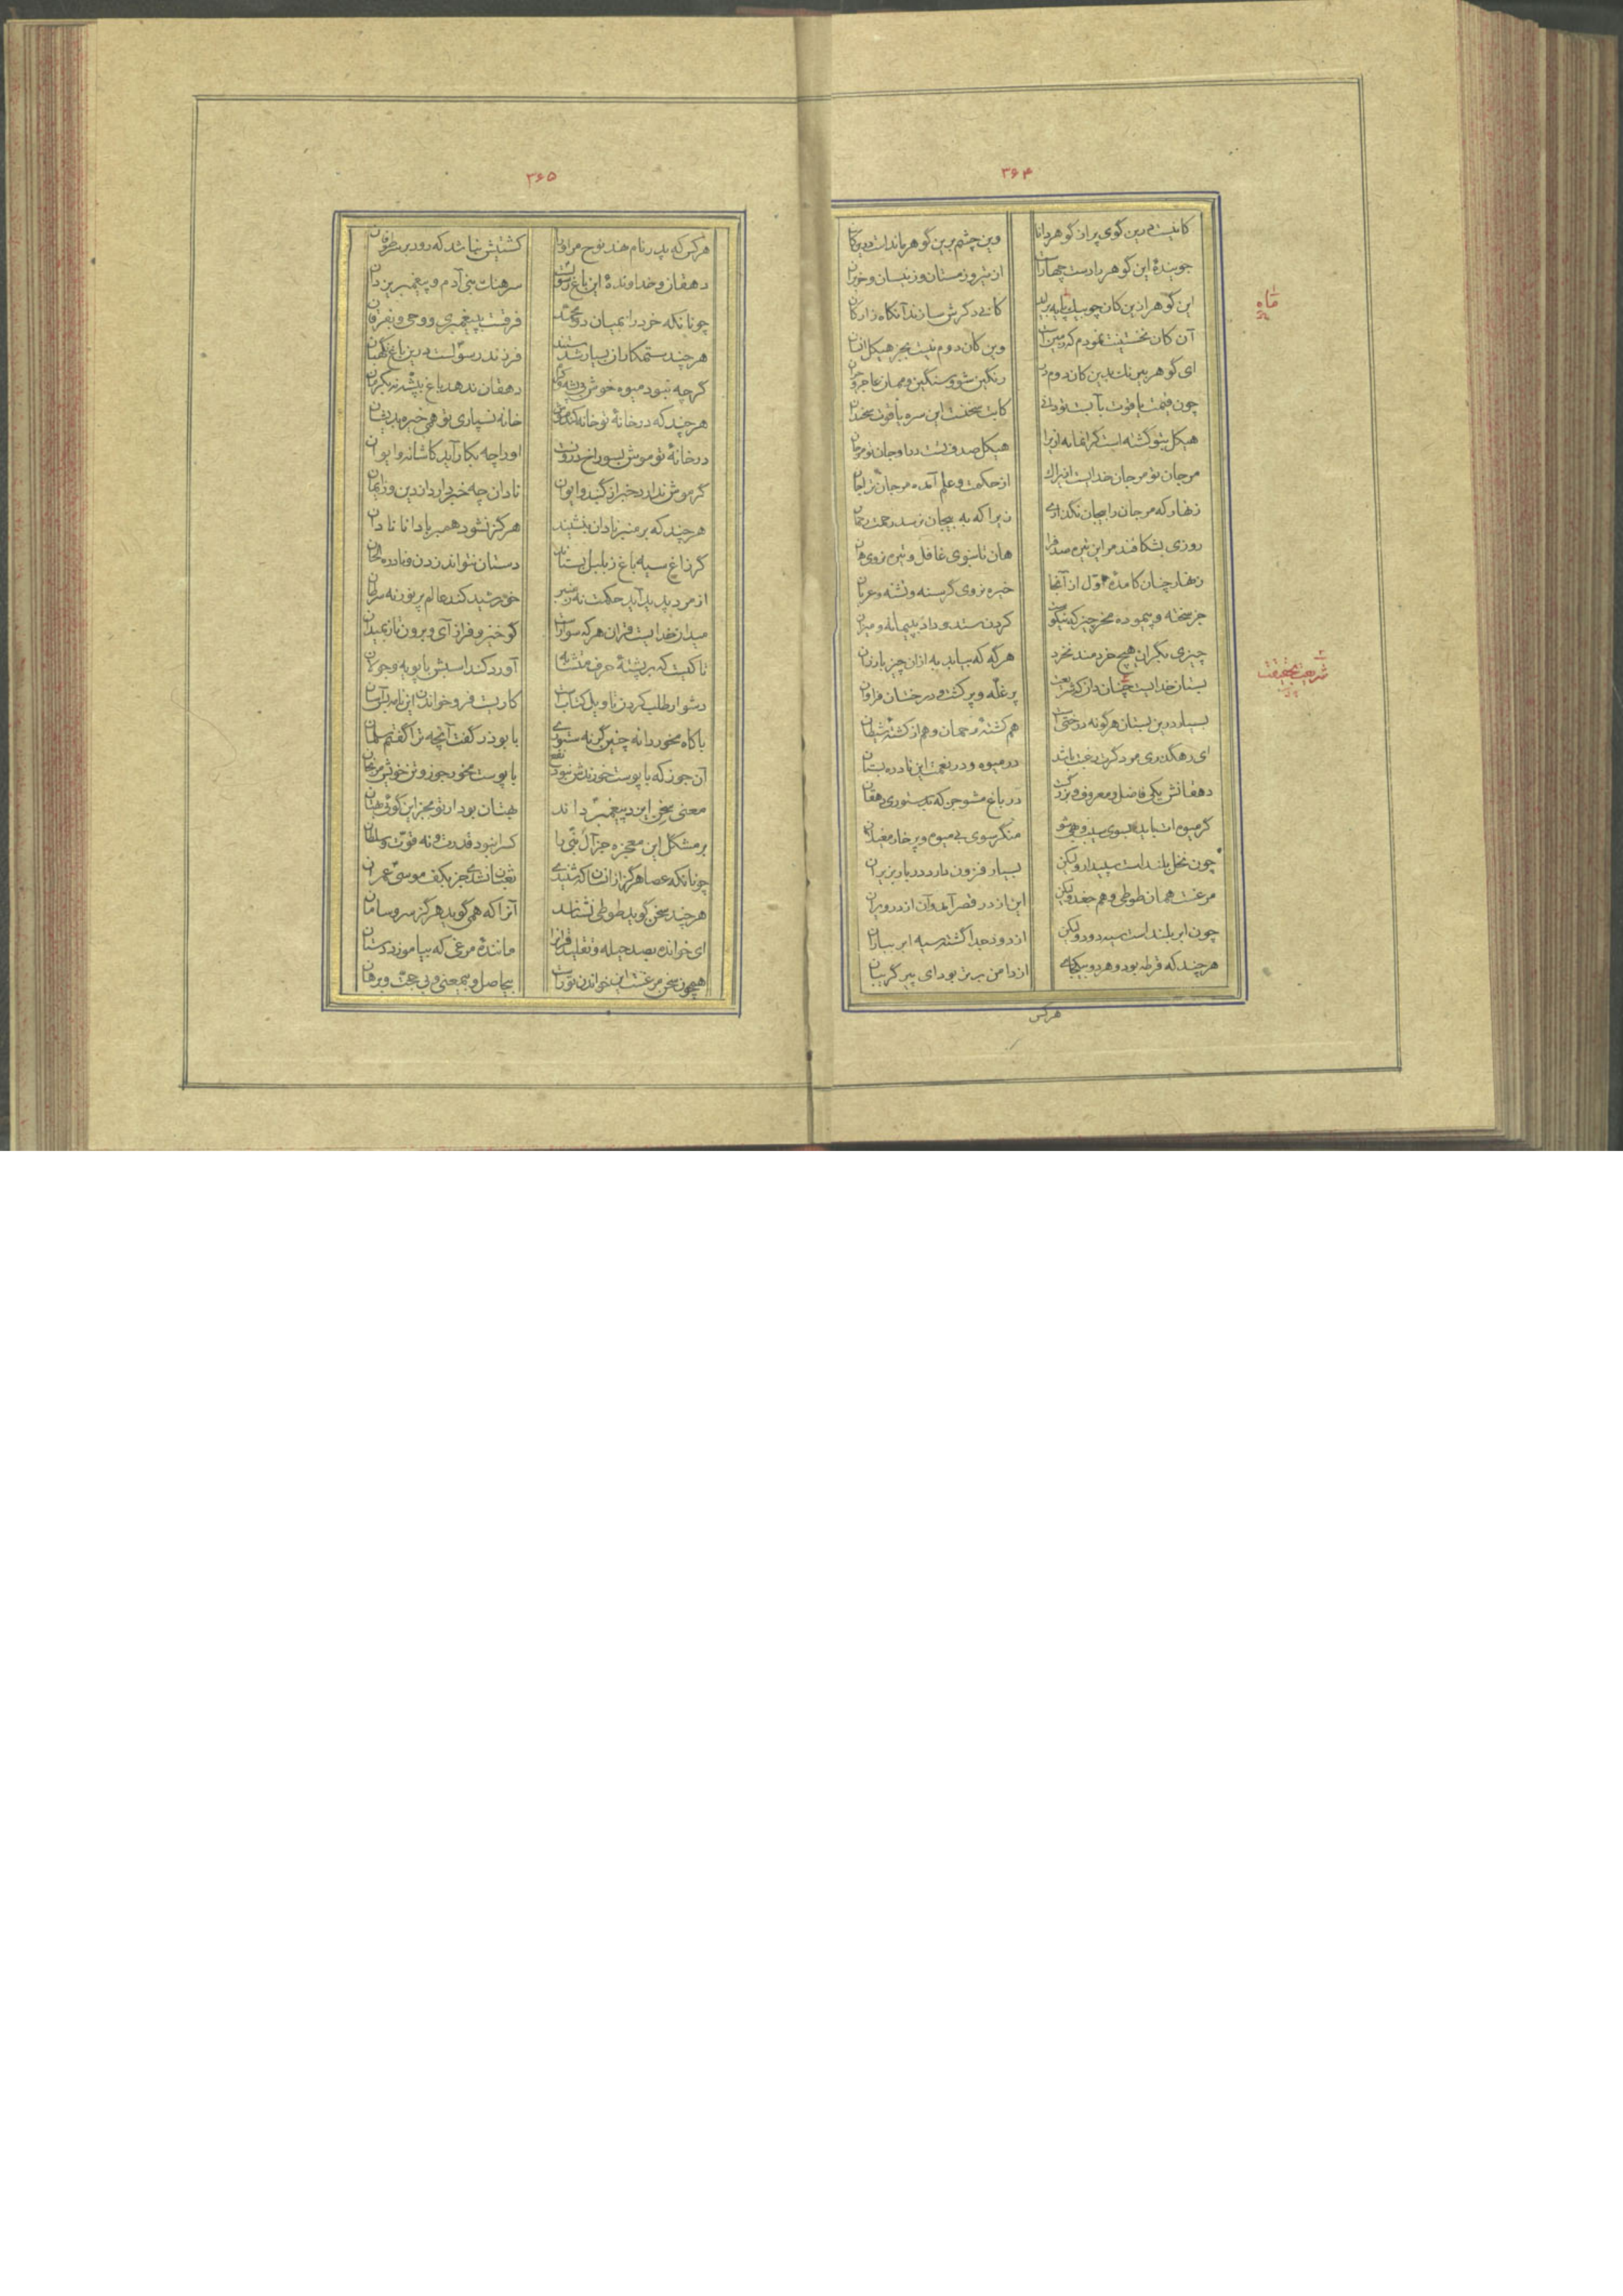 ۳۶۴
کانیست درین گوی پر از گوهر دانا
وین چشم برین گوهر ماندست درین کان
جویندهٔ این گوهر را دست چهارست
از تیر و زمستان و ز نیسان و حزیران
این گوهر ازین کان چو بیک پایه برآید
کانی دگرش سازند آنگاه زارکان
آن کان نخستینت نمودم که زمین است
وین کان دوم نیست بجز هیکل انسان
ای گوهر بی‌رنگ بدین کان دوم در
رنگین شو و سنگین و مهمان
چون قیمت یاقوت بآبست تو دانی
کابت سخنست این سره یاقوت سخندان
هیکل بتو گشته است گرانمایه ازیرا
هیکل صدفست و جان تو مرجان
مرجان تو مرجان خدایست ازیراک
از حکمت و علم آمده مرجان ترا جان
زنهار که مرجان را بیجان نگذاری
زیرا که به بیجان نرسد رحمت رحمان
روزی بشکافند مر این تیره صدف را
هان تا نبوی غافل و تیره نروی هان
زنهار چنان کامدهٔ اول از آنجا
خیره نروی گرسنه و تشنه و عریان
جز سخته و پیموده مخر چیز که نیکوست
کردن ستد و داد بپیمانه و میزان
چیزی بگران هیچ خردمند نخرد
هرگه که بیابد به ازان چیز بارزان
بستان خدایست چنان دان که شریعت
پر غله و پر کشت و درختان فراوان
بسیار درین بستان هرگونه درختی است
هم کشتهٔ رحمان و هم از کشتهٔ شیطان
ای رهگذری مرد گرت رغبت باشد
در میوه و در نعمت این نادره بستان
دهقانش یکی فاضل و معروف و بزرگست
در باغ مشو جز که بدستوری دهقان
گر میوه ات باید بسوی سیب و بهی شو
منگر سوی بی‌میوه و پر خار مغیلان
چون نخل بلند است سپیدار ولیکن
بسیار فزون دارد در بار بزیر آن
مرغست همان طوطی و هم جغد ولیکن
این از در قصر آمد و آن از در ویران
چون ابر بلند است سیه دود ولیکن
از دود جدا گشته سیه ابر بباران
هرچند که قرطه بود و هر دو بیکجای
از دامن برتر بود ای پیر گریبان
هرکس
ماه
شریعت حقیقت
۳۶۵
هرکس که پدر نام نهد نوح مر او را
کشتیش نباشد که رود بر سر طوفان
دهقان و خداوندهٔ این باغ رسولست
سرهنگ بنی آدم و پیغمبر یزدان
چونانکه خرد را بمیان دو محمد
فرقست پیغمبری و وحی و بفرقان
هرچند ستمکاران بسیار شدستند
فرزند رسولست درین باغ نگهبان
گرچه نبود میوه خوش
دهقان ندهد باغ بپشه نه بگرمان
هرچند که در خانهٔ تو خانه کند موش
خانه نسپاری تو همی خیره بدیشان
در خانهٔ تو موش بسوراخ درونست
او را چه بکار آید کاشانه و ایوان
گر موش ندارد خبر از گنبد و ایوان
نادان چه خبر دارد از دین و ز ایمان
هرچند که بر منبر نادان بنشیند
هرگز نشود همبر با دانا نادان
گر زاغ سیه باغ ز بلبل بستاند
دستان نتواند زدن و نادره الحان
از مرد پدید آید حکمت نه ز منبر
خورشید کند عالم پر نور نه سرطان
میدان خدایست قران هرکه سوارست
گو خیز و فراز آی و برون تاز بمیدان
تا کیست که بر پشتهٔ حرف متشابه
آورد کند اسبش با پویه و جولان
دشوار طلب کردن تاویل کتابست
کاریست فرو خواندن این نامه بس آسان
با کاه مخور دانه چنین گرنه ستوری
با بوذر گفت آنچه ترا گفتم سلمان
آن جوز که با پوست خورندش نبود نفع
با پوست مخور جوز و تن خویش مرنجان
معنی سخن ایزد پیغمبر داند
بهتان بود ار تو بجز این گوئی بهتان
بر مشکل این معجزه جز آل نبی را
کس را نبود قدرت و نه قوت و سلطان
چونانکه عصا هرگز از انسان که شنیدی
ثعبان نشدی جز بکف موسی عمران
هرچند سخن گوید طوطی نشناسد
آنرا که همی گوید هرگز سر و سامان
ای خوانده بصد حیله و تقلید قرانرا
مانندهٔ مرغی که بیاموزد دستان
همچون سخن مرغست این خواندن تو راست
بیحاصل و بیمعنی و بی حجت و برهان